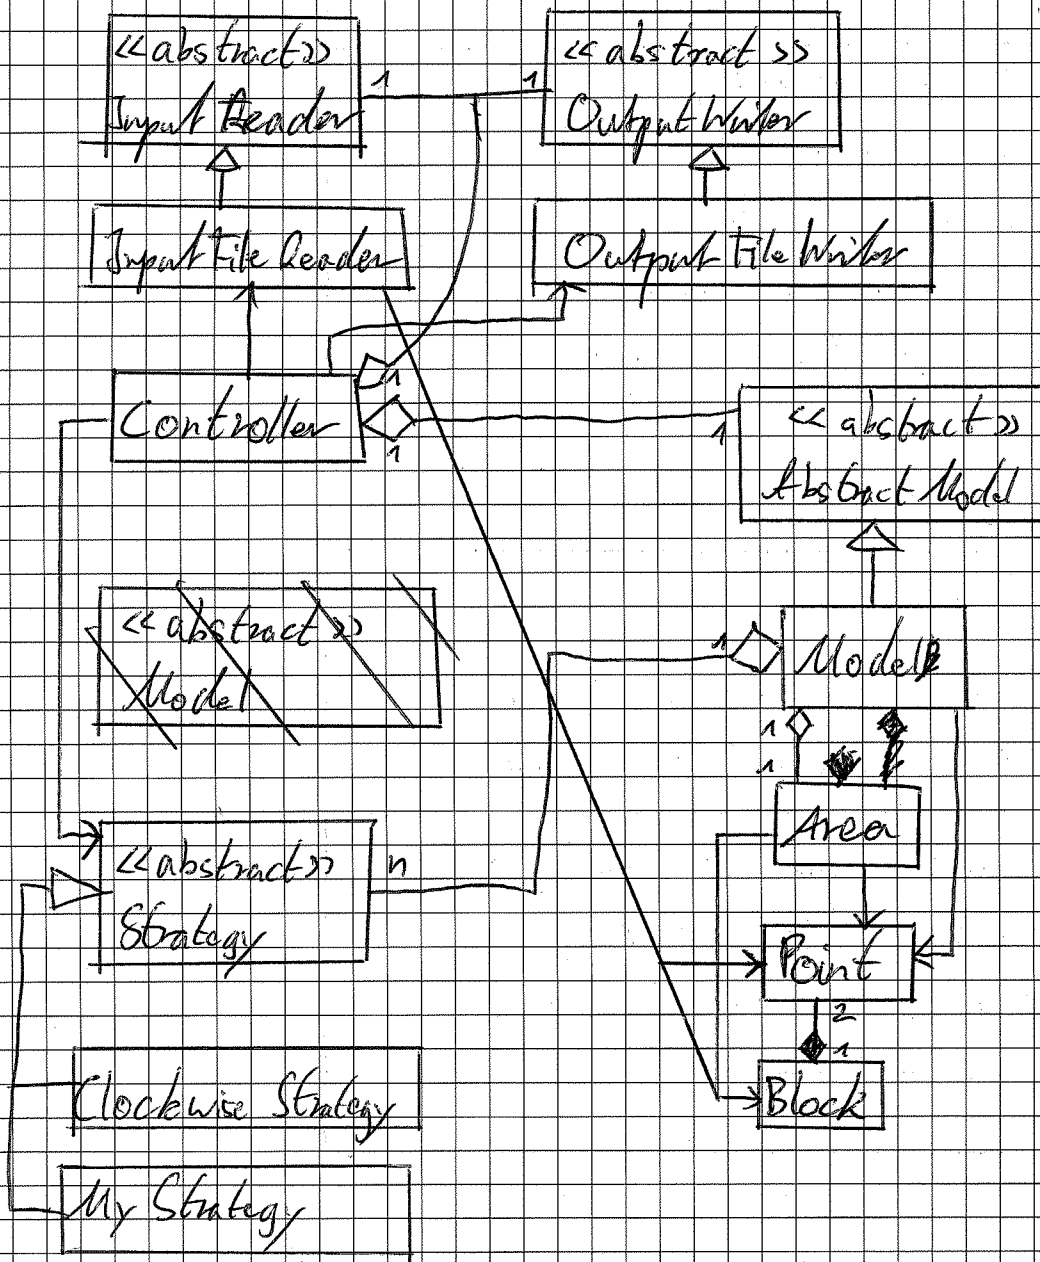 <<abstract>>
Input Reader
1
1
<< abstract >>
OutputWriter
InputFileReader
Output FileWriter
1
Controller
1
1
<< abstract >>
Abstract Model
<< abstract >>
Model
1
Model
1
1
Area
<<abstract>>
Strategy
n
Point
2
1
Block
Clockwise Strategy
My Strategy